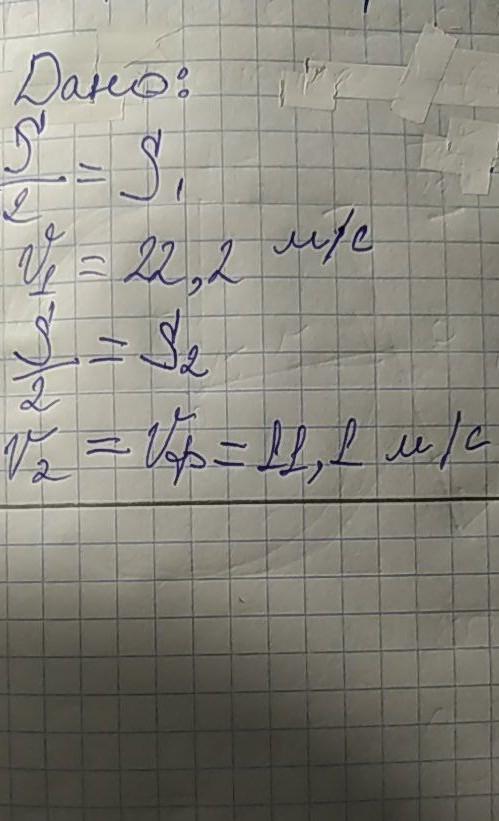 Дано:
S/2 = S₁
V₁ = 22,2 м/с
S/2 = S₂
V₂ = Vср = 11,1 м/с